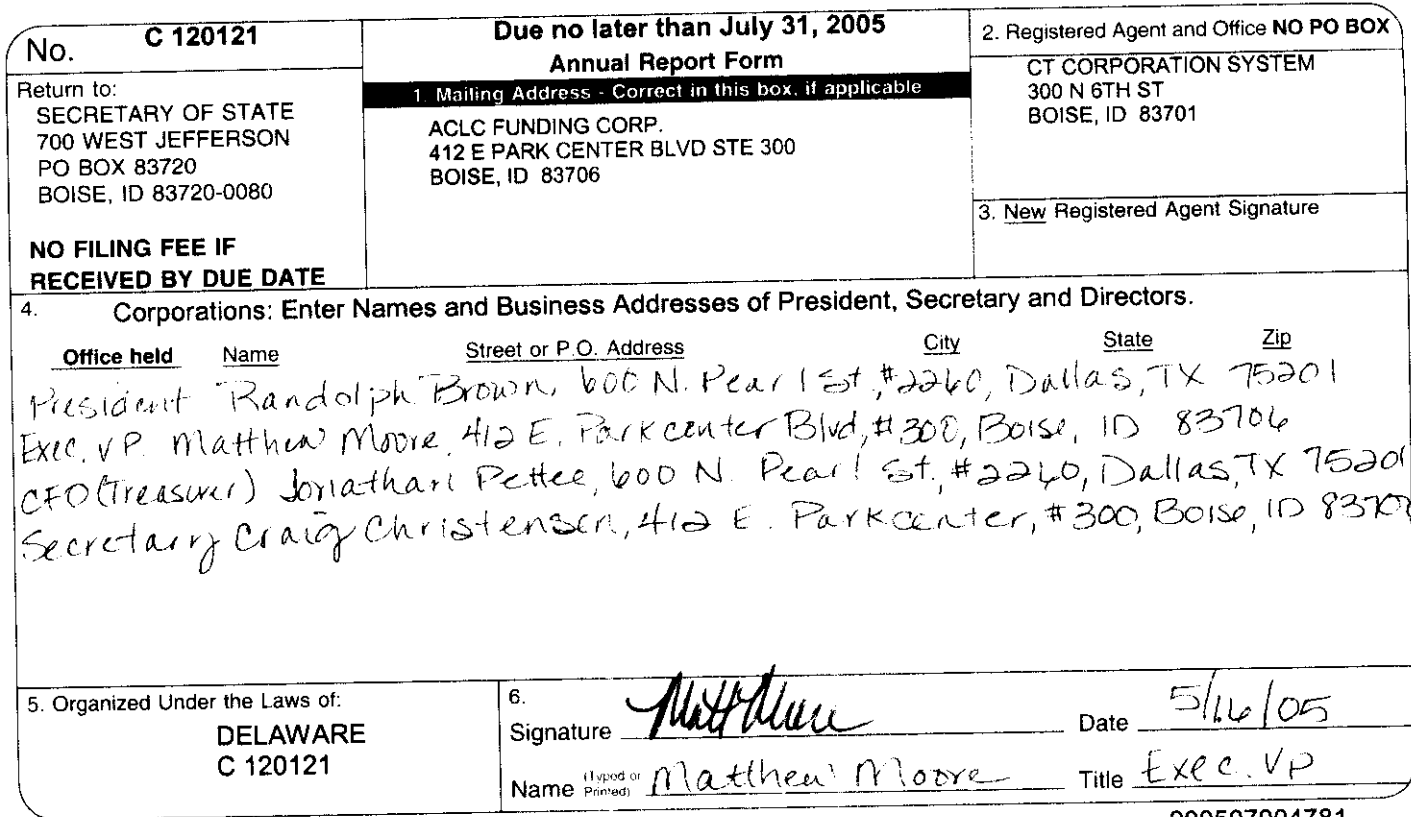 No. C 120121
Return to:
SECRETARY OF STATE
700 WEST JEFFERSON
PO BOX 83720
BOISE, ID 83720-0080
NO FILING FEE IF
RECEIVED BY DUE DATE
Due no later than July 31, 2005
Annual Report Form
1. Mailing Address - Correct in this box, if applicable
ACLC FUNDING CORP.
412 E PARK CENTER BLVD STE 300
BOISE, ID 83706
2. Registered Agent and Office NO PO BOX
CT CORPORATION SYSTEM
300 N 6TH ST
BOISE, ID 83701
3. New Registered Agent Signature
4. Corporations: Enter Names and Business Addresses of President, Secretary and Directors.
Office held Name Street or P.O. Address City State Zip
President Randolph Brown, 600 N. Pearl St, #2260, Dallas, TX 75201
Exec. VP. Matthew Moore, 412 E. Parkcenter Blvd, #300, Boise, ID 83706
CFO (Treasurer) Jonathan Pettee, 600 N. Pearl St., #2260, Dallas, TX 75201
Secretary Craig Christensen, 412 E. Parkcenter, #300, Boise, ID
5. Organized Under the Laws of:
DELAWARE
C 120121
6.
Signature Matt Moore Date 5/16/05
Name (Typed or Printed) Matthew Moore Title Exec. VP